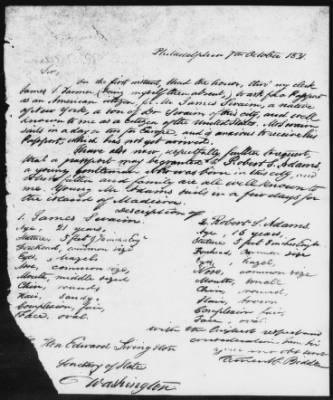 Philadelphia 7th October 1831.
Sir,
On the first instant, I had the honor, thro' my clerk
James S. (being myself then absent,) to ask for a Passport
as an American citizen, for Mr. James Swaim, a native
of New York, a son of Dr. Swaim of this city, and well
known to me as a citizen of the United States. Mr. Swaim
sails in a day or two for Europe, and is anxious to receive his
Passport, which has not yet arrived.
I have also now respectfully further to request,
that a passport may be granted to Robert S. Adams,
a young gentleman who was born in this city, and
who and family are all well known to
me. Young Mr. Adams sails in a few days for
the island of Madeira.
Description of
1. James Swaim
Age, 21 years,
Stature, 5 feet
Forehead, common size
Eyes, hazel
Nose, common size,
Mouth, middle sized
Chin, round
Hair, sandy,
Complexion, fair,
Face, oval.
2. Robert S. Adams.
Age, 16 years,
Stature 5 feet
Forehead, common size
Eyes, hazel,
Nose, common size
Mouth, small
Chin, round,
Hair, brown
Complexion fair
Face, oval.
with the highest respect and
consideration I am Sir
your mo. obt. servt
To Hon Edward Livingston
Secretary of State
Washington